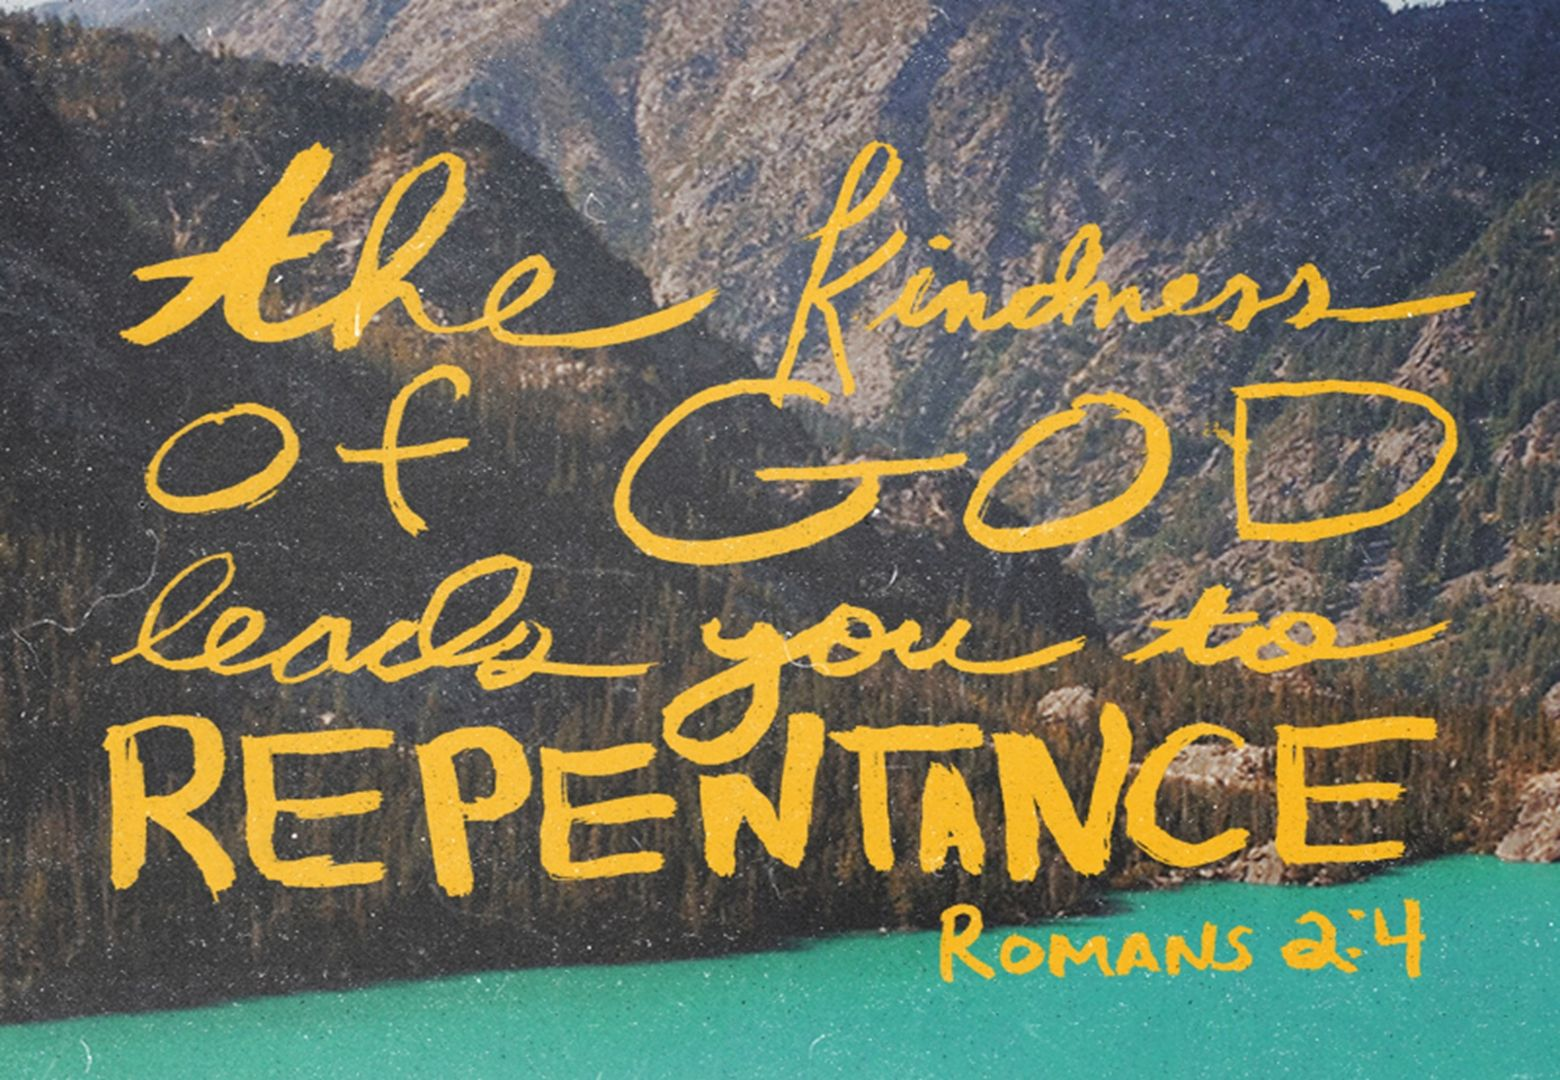 the kindness
of GOD
leads you to
REPENTANCE
ROMANS 2:4